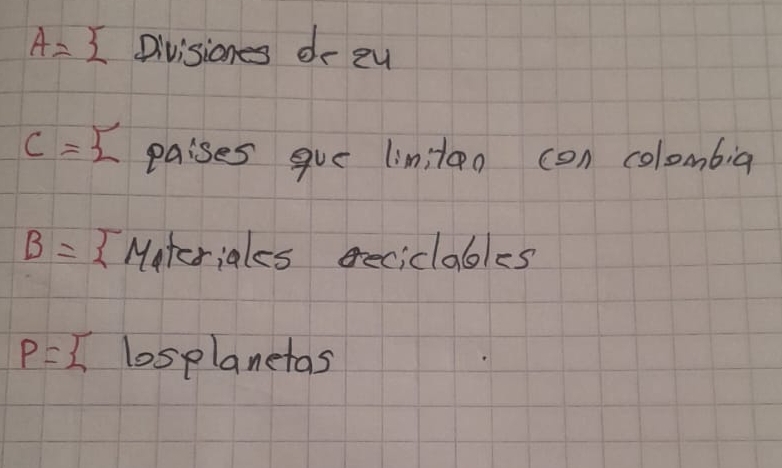 A = { Divisiones de 24
C = { paises que limitan con colombia
B = { Materiales reciclables
P = { los planetas